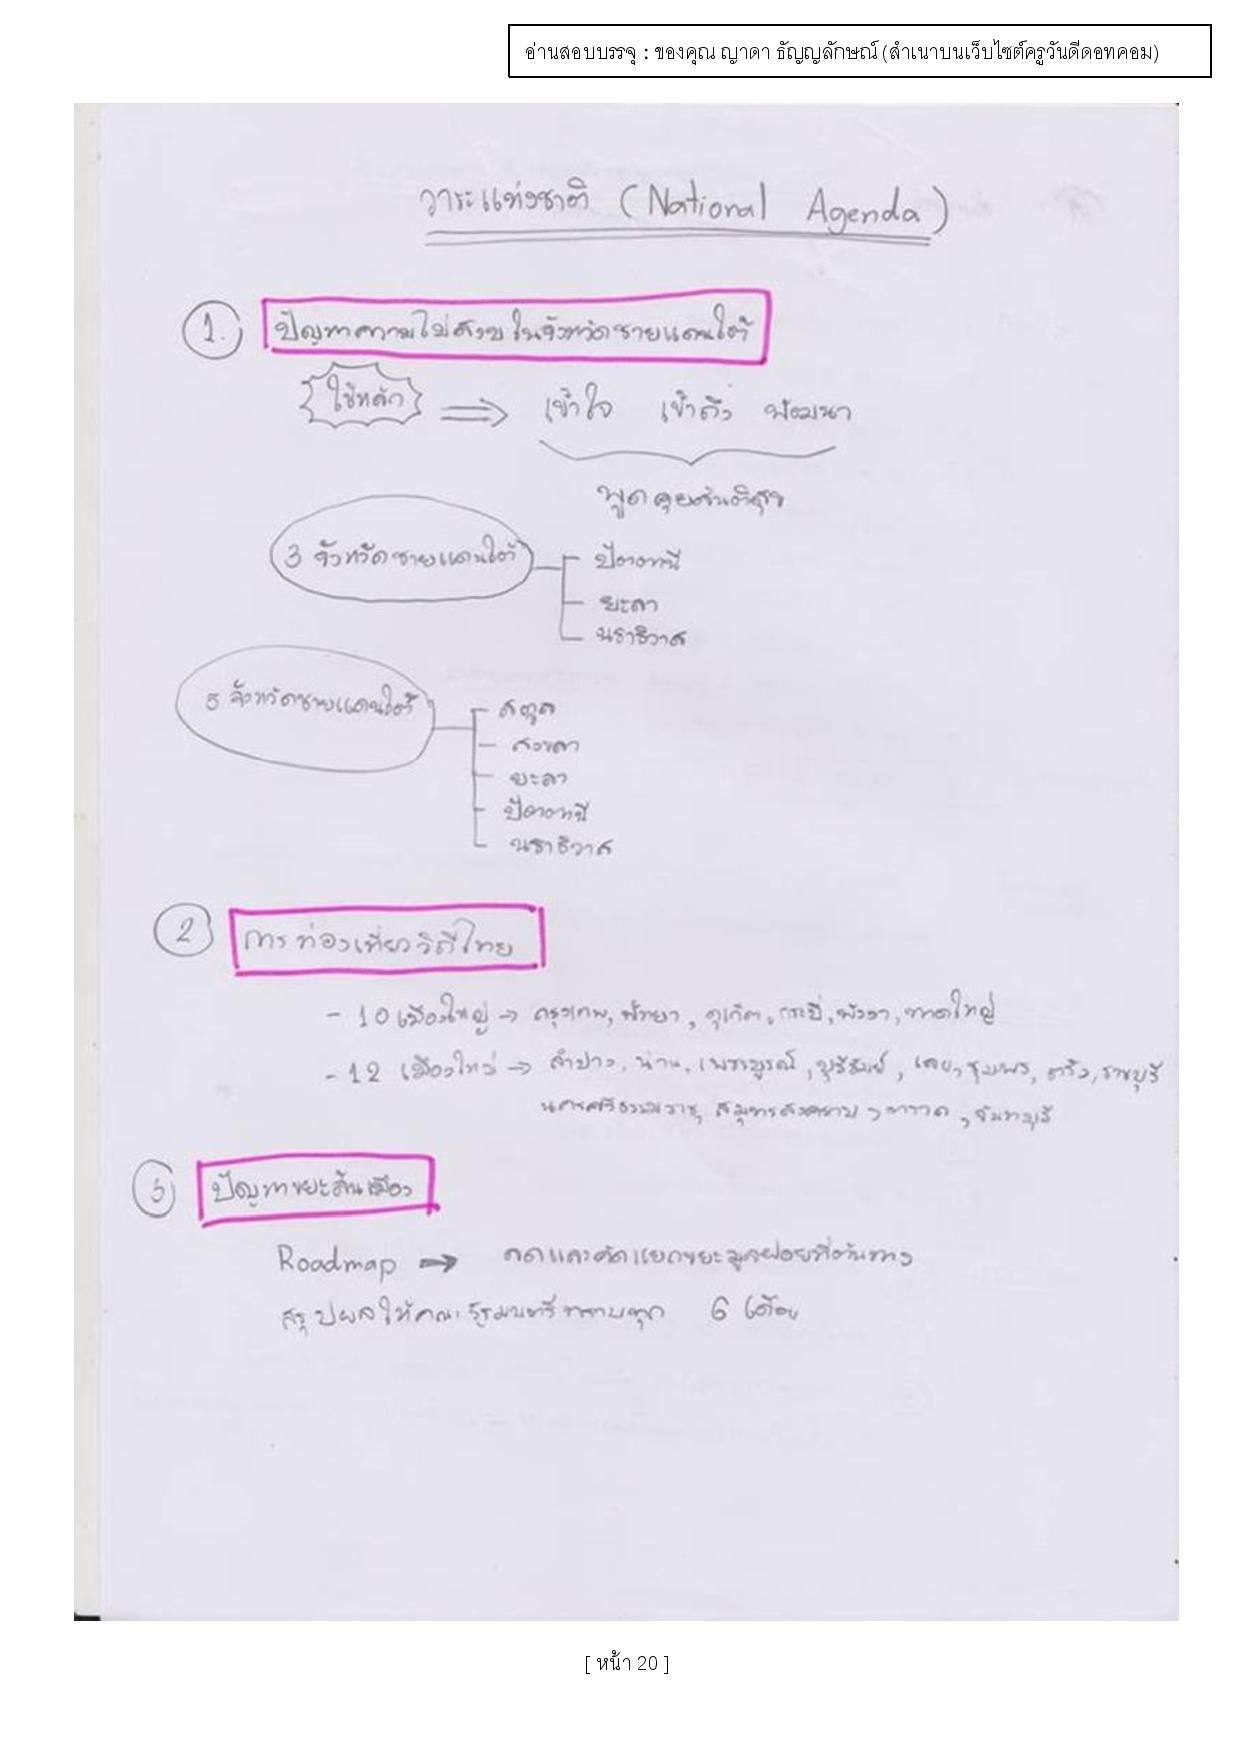 อ่านสอบบรรจุ : ของคุณ ญาดา ธัญญลักษณ์ (สำเนาบนเว็บไซต์ครูวันดีดอทคอม)
วาระแห่งชาติ (National Agenda)
1. ปัญหาความไม่สงบในจังหวัดชายแดนใต้
ใช้หลัก ⇒ เข้าใจ เข้าถึง พัฒนา
พูดคุยสันติสุข
3 จังหวัดชายแดนใต้
ปัตตานี
ยะลา
นราธิวาส
5 จังหวัดชายแดนใต้
สตูล
สงขลา
ยะลา
ปัตตานี
นราธิวาส
2 การท่องเที่ยววิถีไทย
- 10 เมืองใหญ่ → กรุงเทพ, พัทยา, ภูเก็ต, กระบี่, พังงา, หาดใหญ่
- 12 เมืองใหม่ → ลำปาง, น่าน, เพชรบูรณ์, บุรีรัมย์, เลย, ชุมพร, ตรัง, ราชบุรี
นครศรีธรรมราช, สมุทรสงคราม, ตราด, จันทบุรี
3 ปัญหาขยะล้นเมือง
Roadmap → ลดและคัดแยกขยะมูลฝอยที่ต้นทาง
สรุปผลให้คณะรัฐมนตรีทราบทุก 6 เดือน
[ หน้า 20 ]